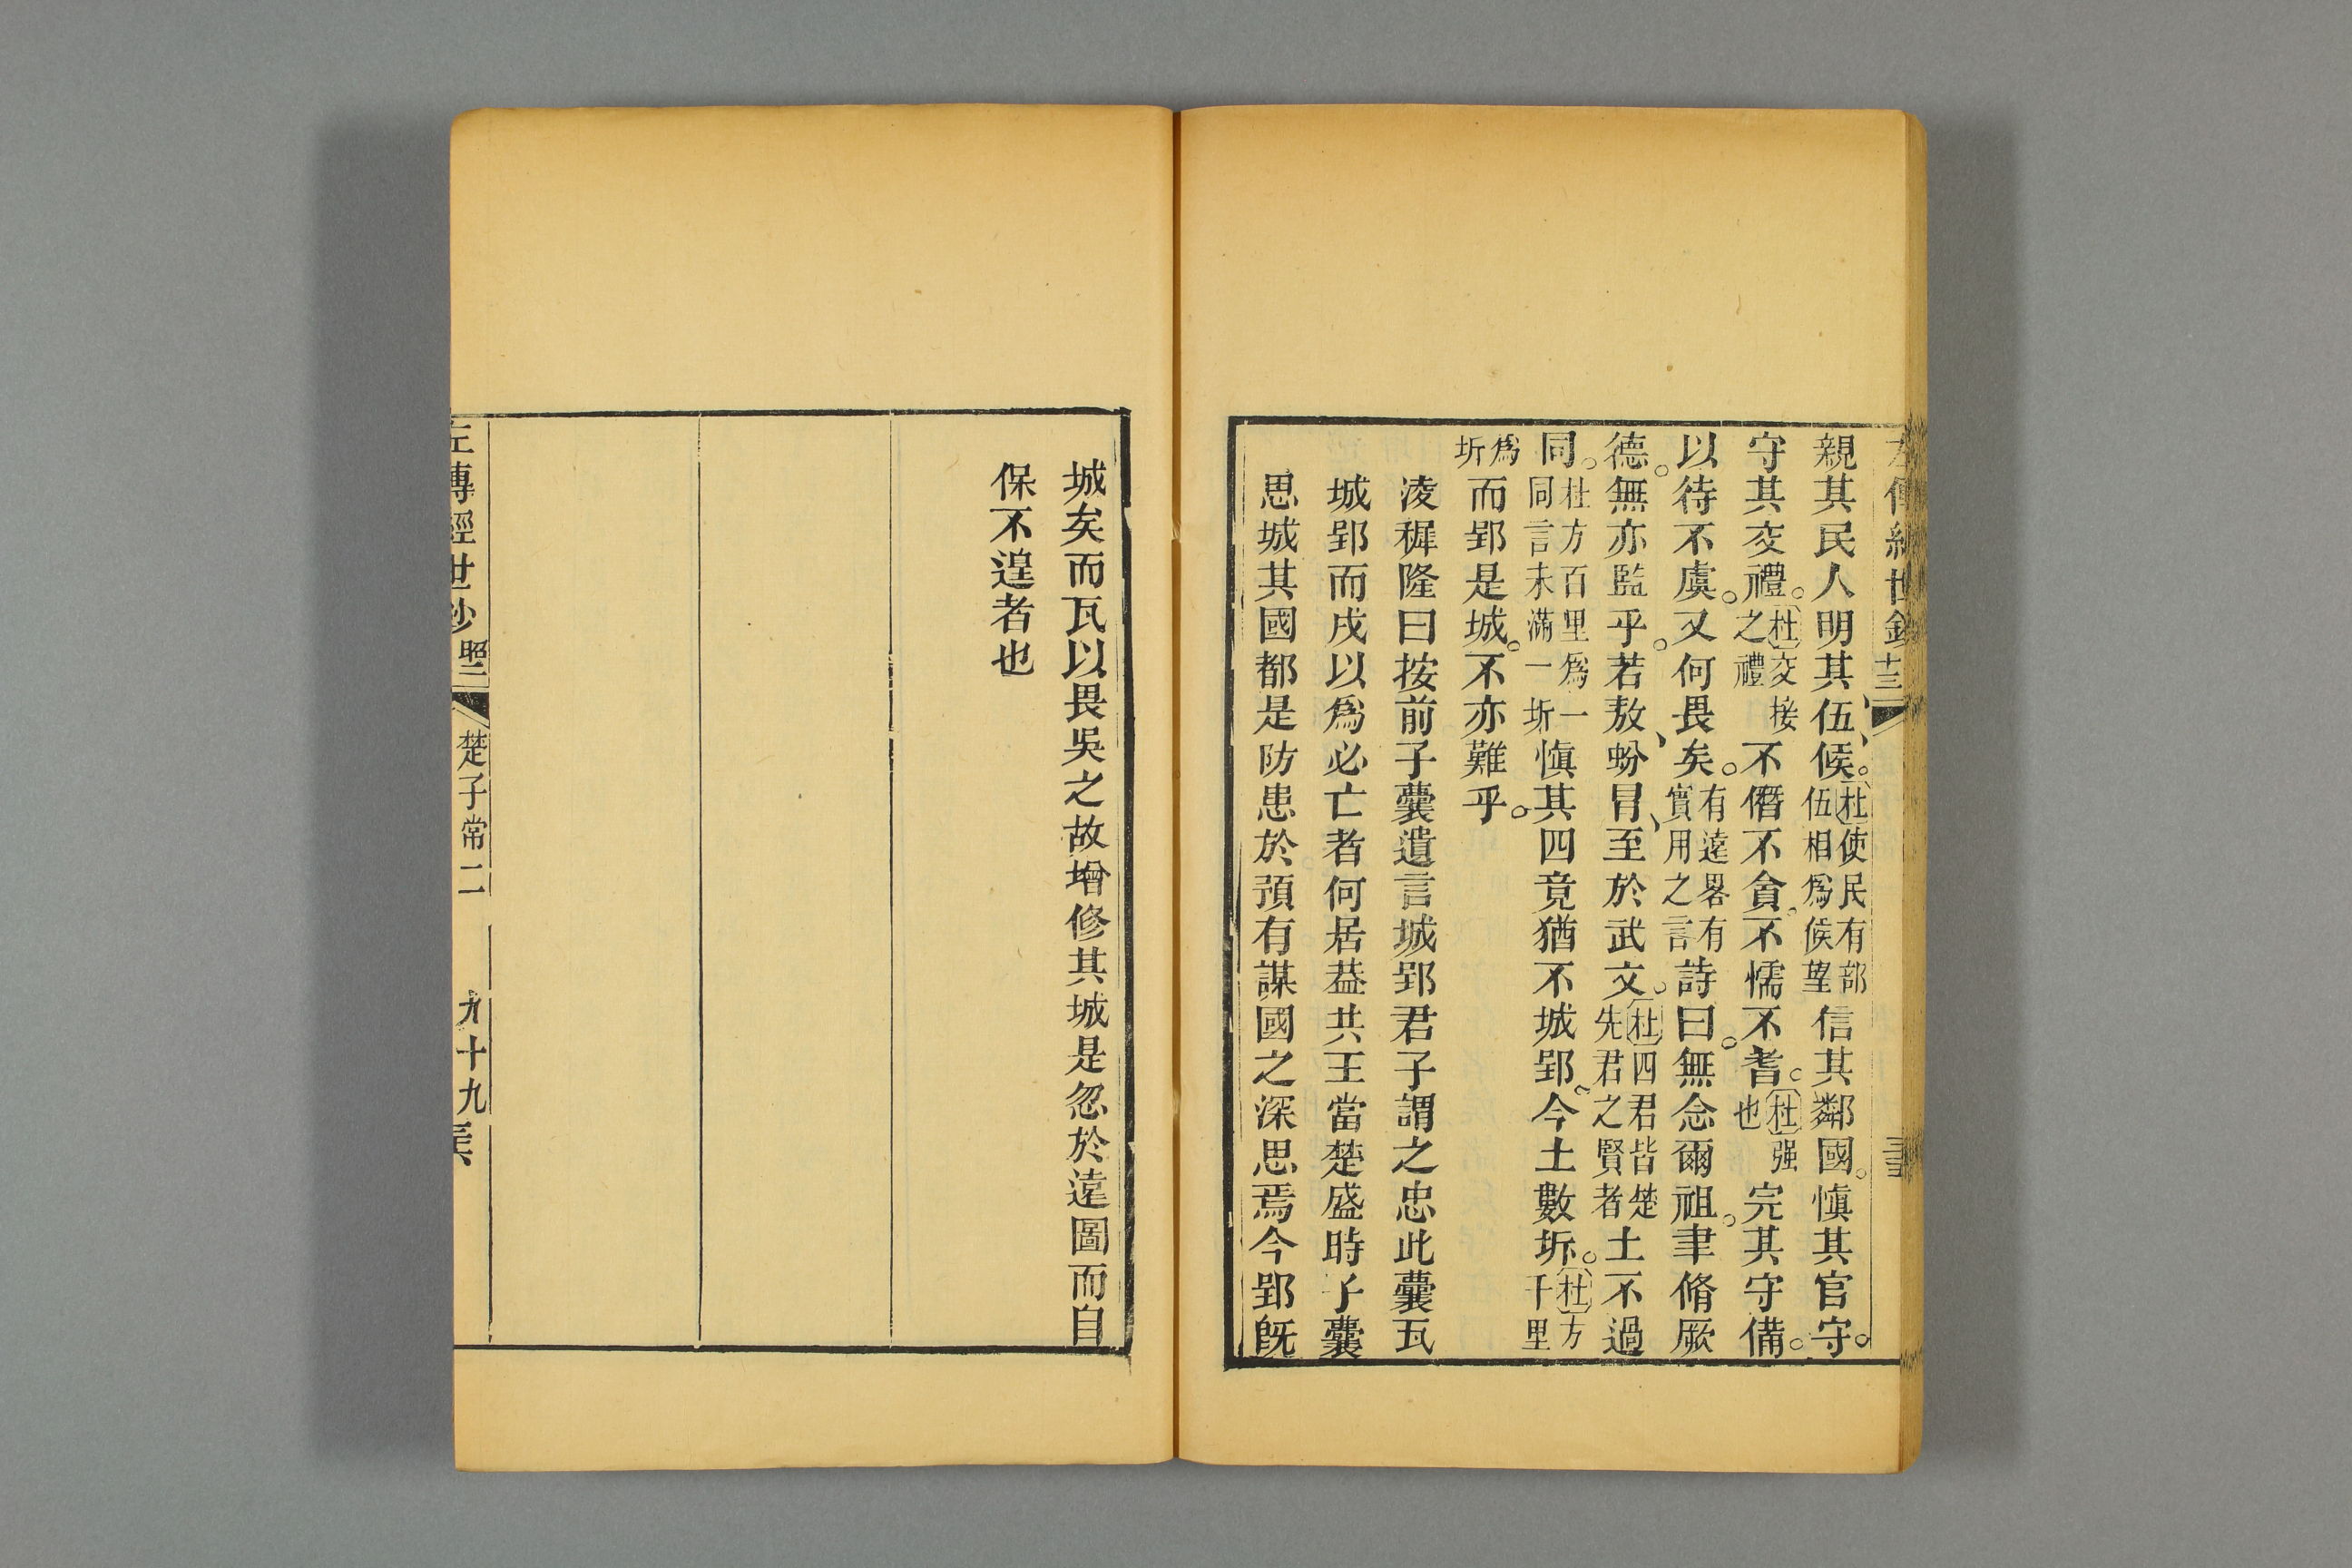 左傳經世鈔
親其民人明其伍候。杜使民有部伍相爲候望信其鄰國。愼其官守。
守其交禮。杜交接之禮不僭不貪。不懦不耆。杜强也完其守備。
以待不虞。又何畏矣。有遠畧有實用之言詩曰。無念爾祖。聿脩厥
德。無亦監乎。若敖、蚡冒、至於武文。杜四君皆楚先君之賢者土不過
同。杜方百里爲一同言未滿一圻愼其四竟猶不城郢。今土數圻。杜方千里
爲圻而郢是城。不亦難乎。
凌稺隆曰按前子囊遺言城郢君子謂之忠此囊瓦
城郢而戌以爲必亡者何居葢共王當楚盛時子囊
思城其國都是防患於預有謀國之深思焉今郢旣
城矣而瓦以畏吳之故增修其城是忽於遠圖而自
保不遑者也
左傳經世鈔 昭二 楚子常二 九十九